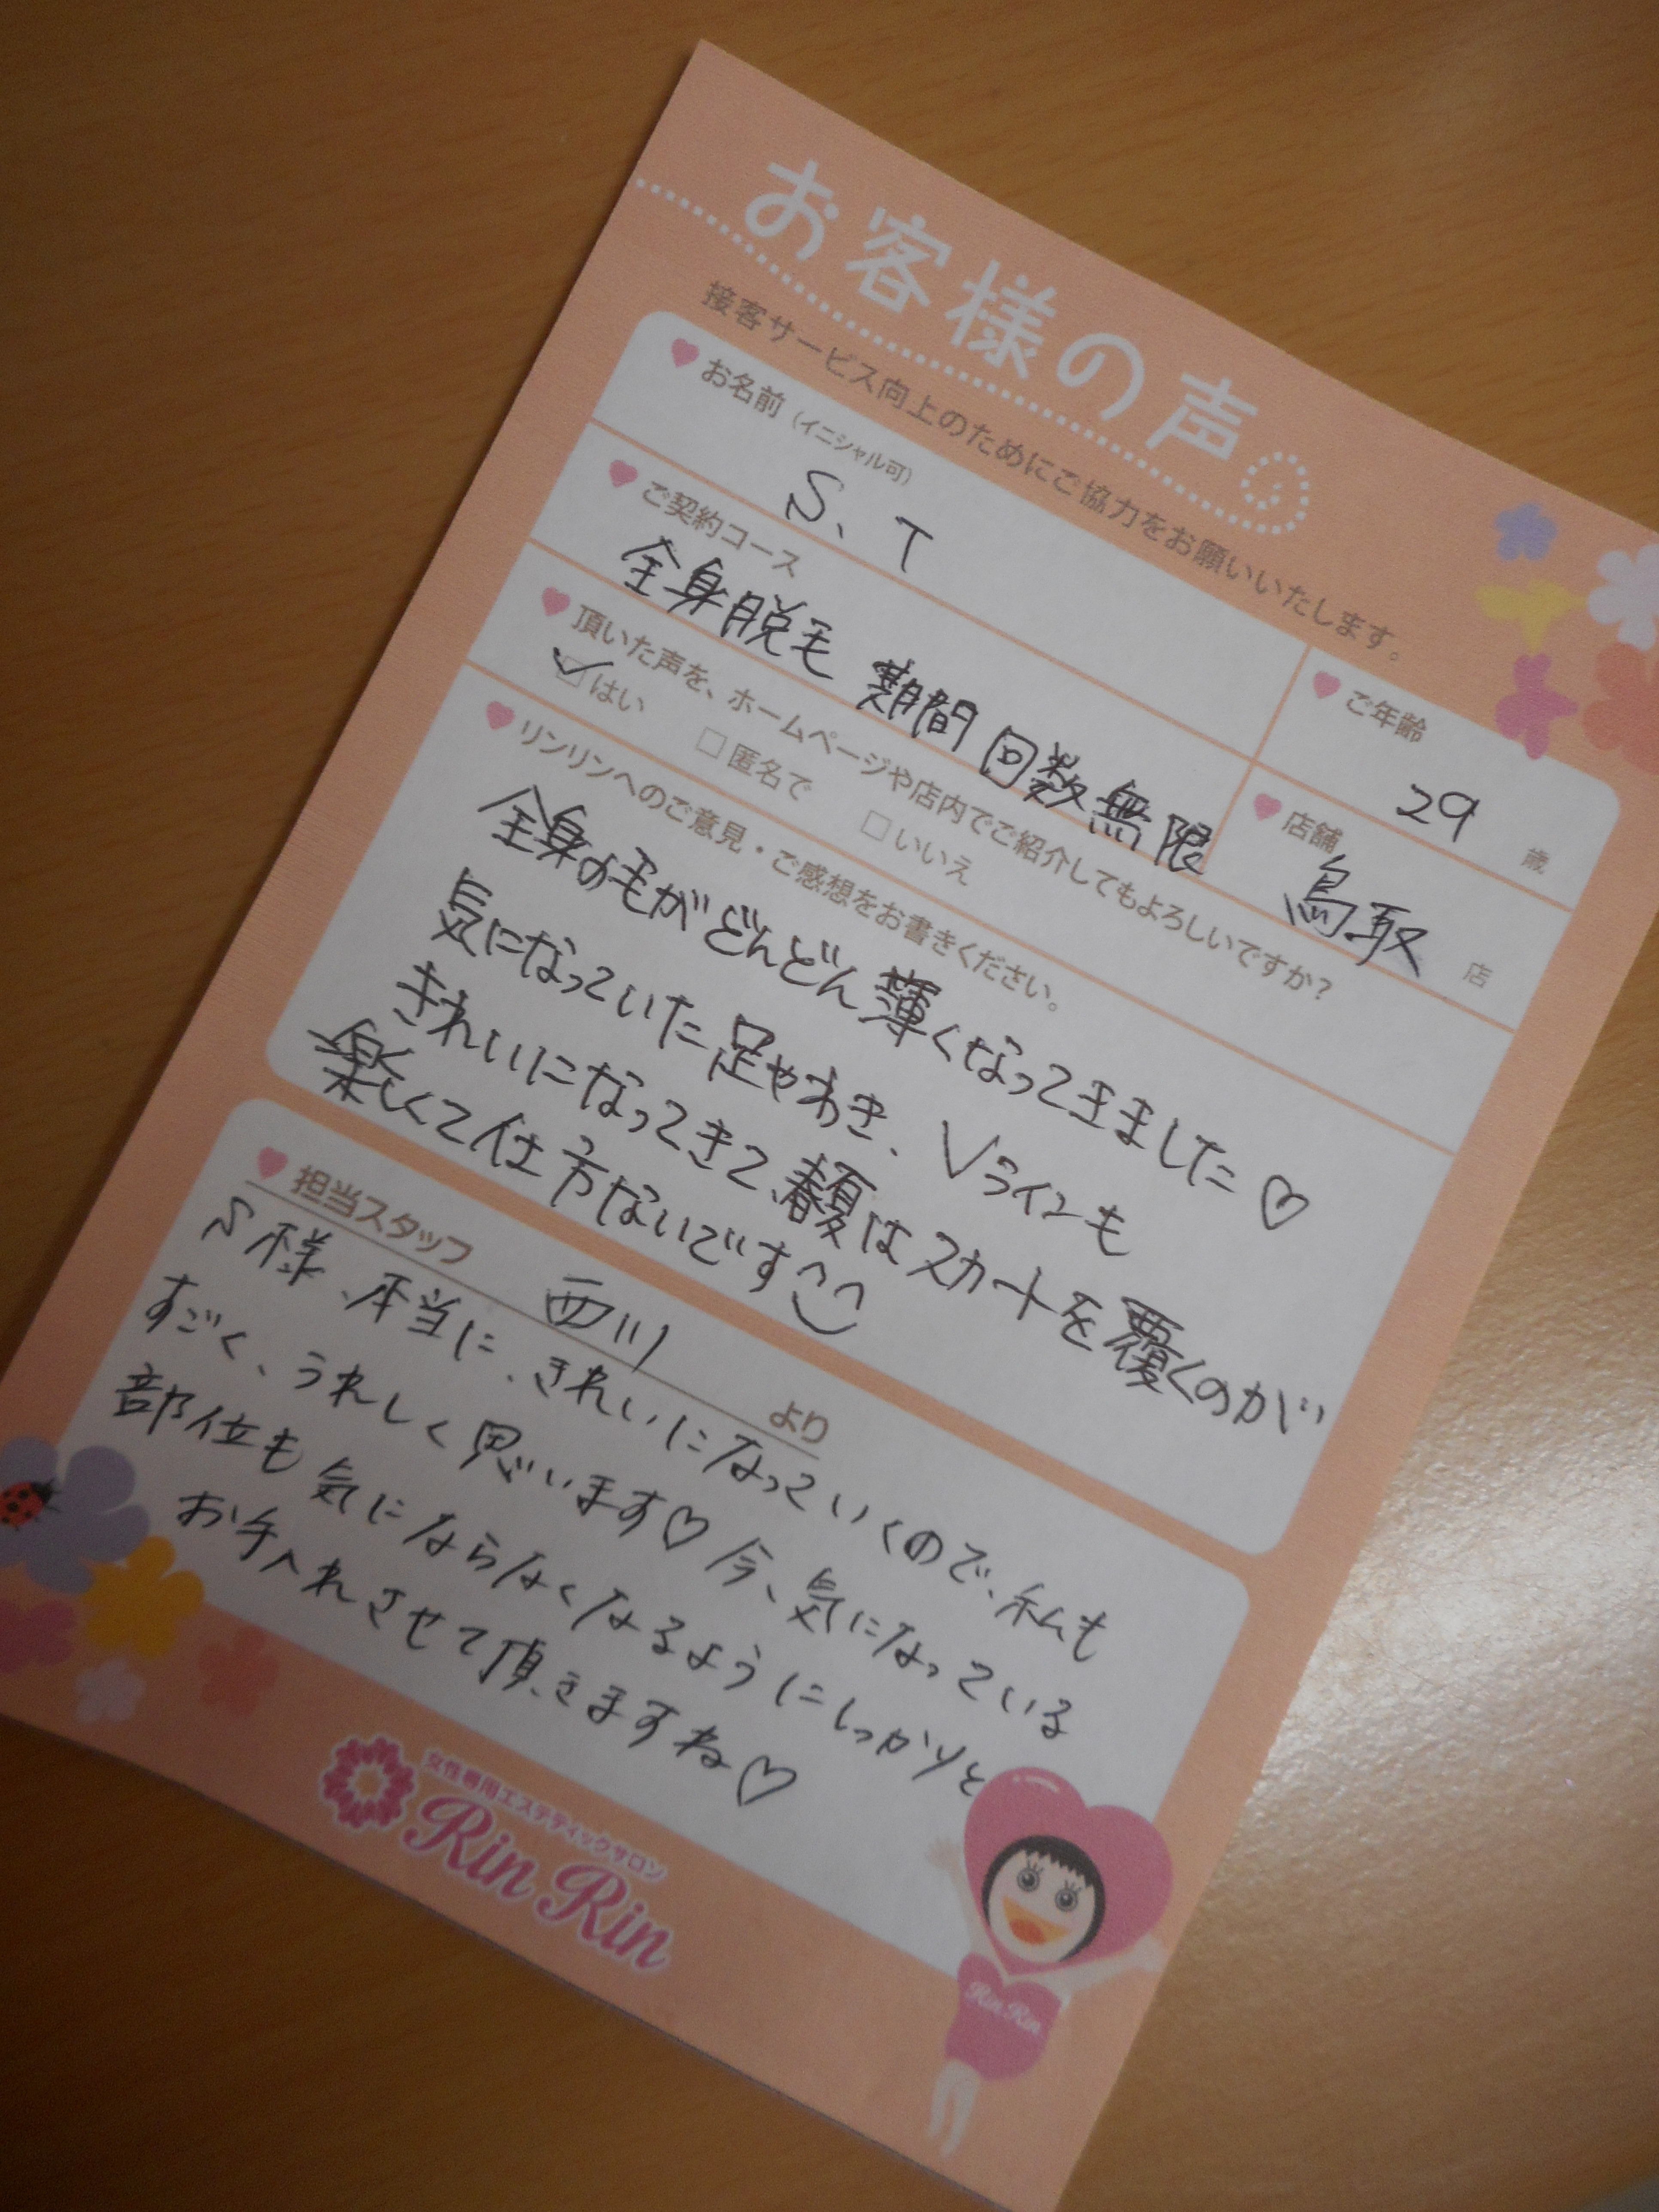 お客様の声
接客サービス向上のためにご協力をお願いいたします。
お名前(イニシャル可)
S、T
ご年齢
29 歳
ご契約コース
全身脱毛 期間回数無限
店舗
鳥取 店
頂いた声を、ホームページや店内でご紹介してもよろしいですか?
はい 匿名で いいえ
リンリンへのご意見・ご感想をお書きください。
全身の毛がどんどん薄くなってきました♡
気になっていた足やわき、Vラインも
きれいになってきて、春夏はスカートを履くのが
楽しくて仕方ないです
担当スタッフ 西川 より
S様、本当に、きれいになっていくので、私も
すごく、うれしく思います♡ 今、気になっている
部位も気にならなくなるようにしっかりと
お手入れさせて頂きますね♡
女性専用エステティックサロン
Rin Rin
Rin Rin